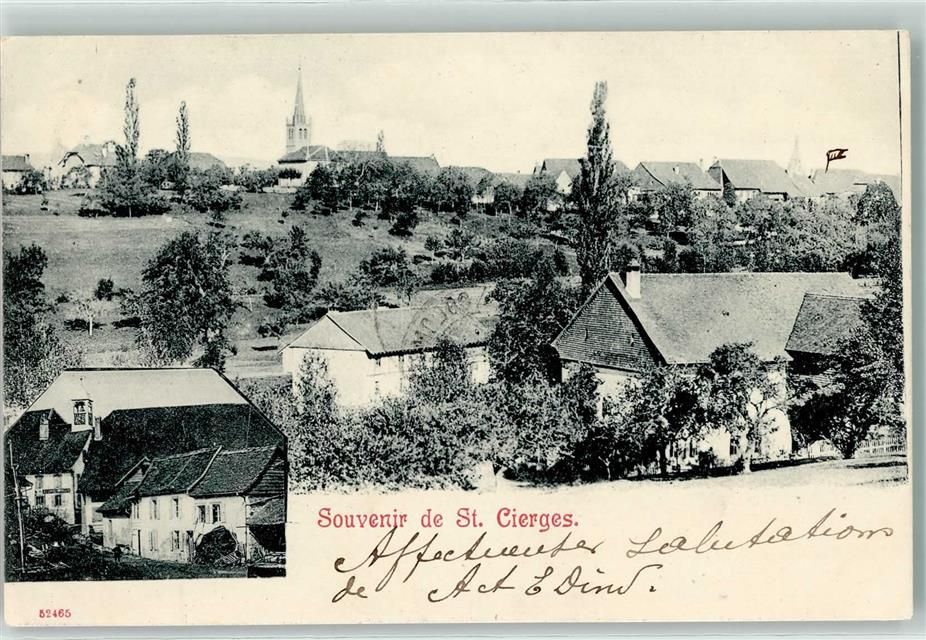 Souvenir de St. Cierges.
Affectueuses salutations
de A et E Dind.
52465